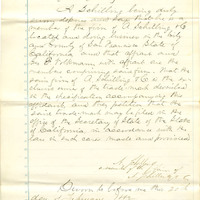 A Schilling being duly
sworn deposes and says that he is a
member of the firm of A Schilling & Co
located and doing business in the City
and County of San Francisco State of
California and that affiant and
B. Volkmann with affiant are the
members comprising said firm, that the
firm of A Schilling & Co is the
owner of the trade mark described
in the specification accompanying this
affidavit and they petition that the
same trademark may be filed in the
office of the Secretary of State of the State
of California in accordance with the
law in such cases made and provided
A Schilling
Sworn to before me this 21st
day of